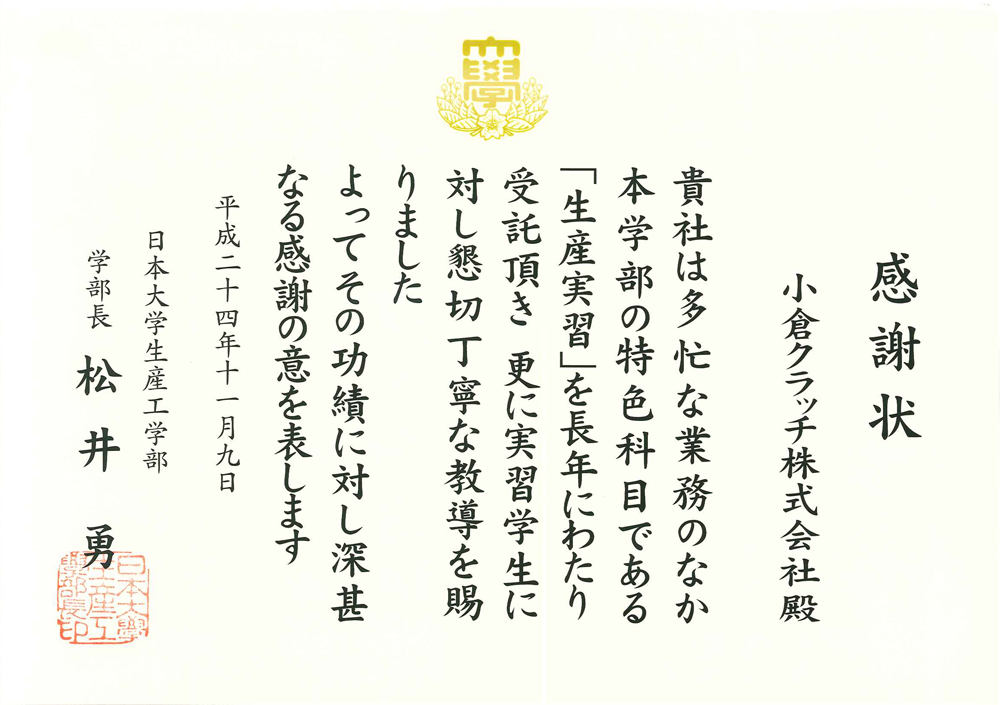 大學
感謝状
小倉クラッチ株式会社殿
貴社は多忙な業務のなか
本学部の特色科目である
「生産実習」を長年にわたり
受託頂き 更に実習学生に
対し懇切丁寧な教導を賜
りました
よってその功績に対し深甚
なる感謝の意を表します
平成二十四年十一月九日
日本大学生産工学部
学部長 松井勇
日本大學
生産工
學部長印